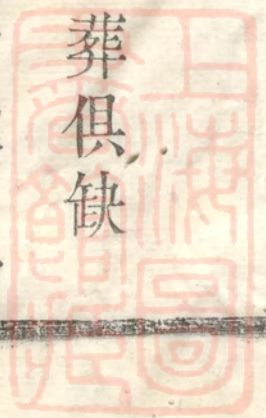 葬俱缺
上海圖
書館藏